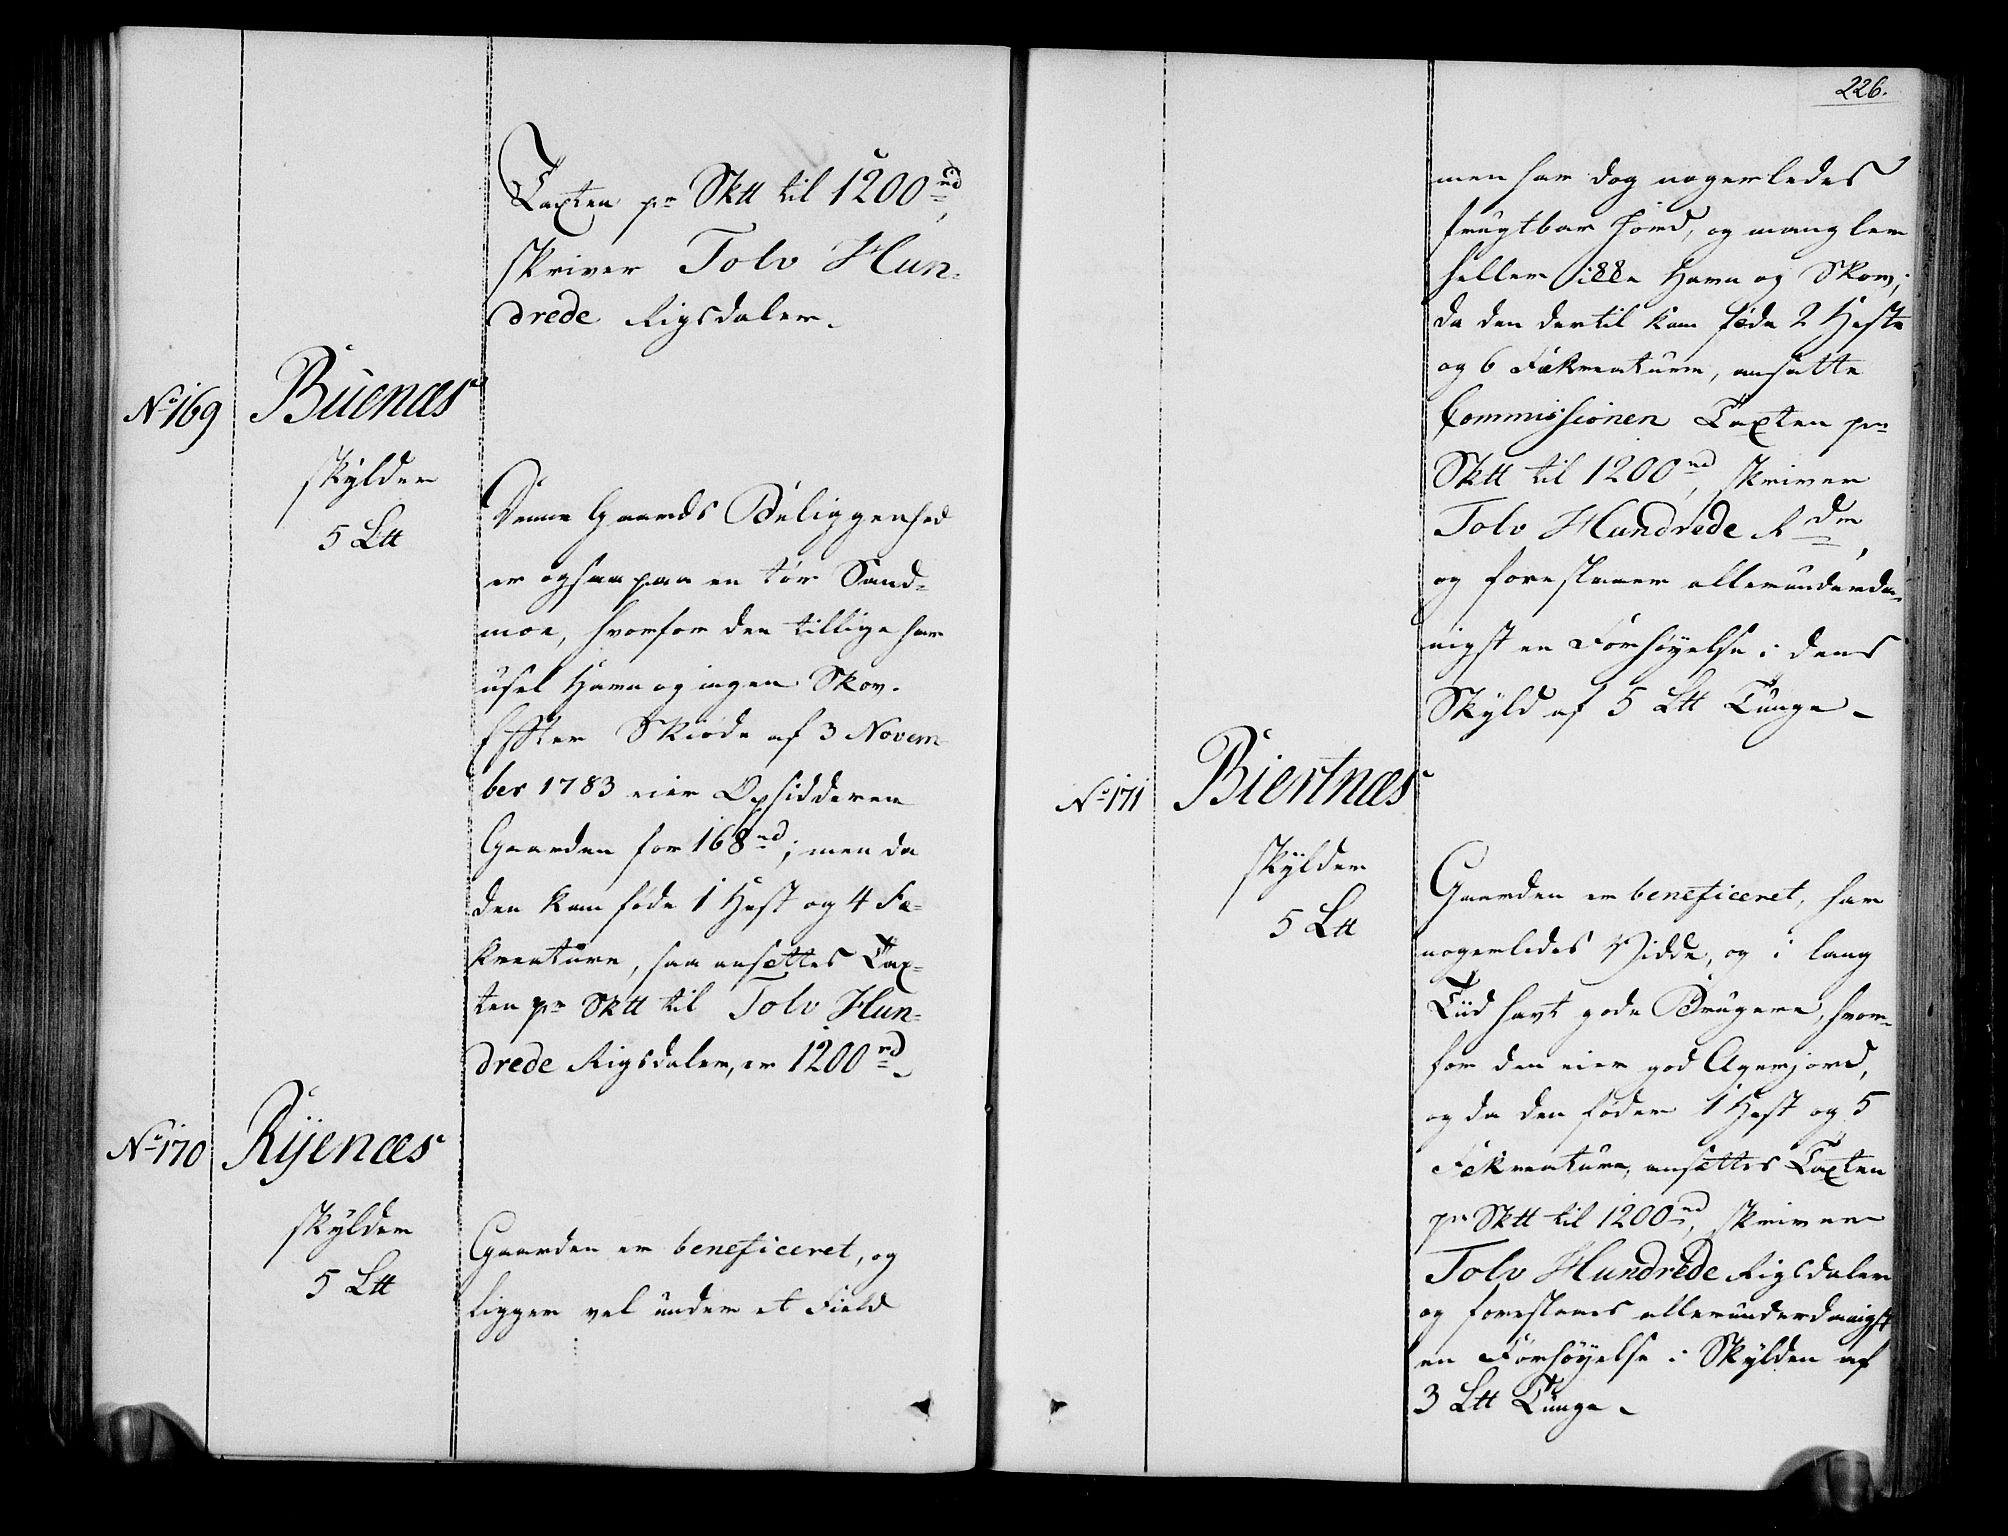 Taxten pr Sktt til 1200 rd,
skriver Tolv Hun-
drede Rigsdaler.
No 169
Buenæs
skylder
5 Ltt
Denne Gaards Beliggenhed
er ogsaa paa en tør Sand-
moe, hvorfor den tillige har
usel Havn og ingen Skov.
Effter Skiøde af 3 Novem-
ber 1783 eier Opsidderen
Gaarden for 168 rd; men da
den kan føde 1 Hest og 4 Fæ-
kreature, saa ansættes Tax-
ten pr Sktt til Tolv Hun-
drede Rigsdaler, er 1200 rd.
No 170
Rijenæs
skylder
5 Ltt
Gaarden er beneficeret, og
ligger vel under et Field
226.
men har dog nogerledes
frugtbar Jord, og mangler
heller ikke Havn og Skov;
da den dertil kan føde 2 Heste
og 6 Fækreature, ansatte
Commissionen Taxten pr
Sktt til 1200 rd, skriver
Tolv Hundrede Rdr,
og forestaaer allerunderda-
nigst en Forhøyelse i dens
Skyld af 5 Ltt Tunge.
No 171
Biertnæs
skylder
5 Ltt
Gaarden er beneficeret, har
nogerledes Vidde, og i lang
Tiid havt gode Brugere, hvor-
for den eier god Agerjord,
og da den føder 1 Hest og 5
Fækreature, ansættes Taxten
pr Sktt til 1200 rd, skriver
Tolv Hundrede Rigsdaler
og forestaaes allerunderdanigst
en Forhøyelse i Skylden af
3 Ltt Tunge.